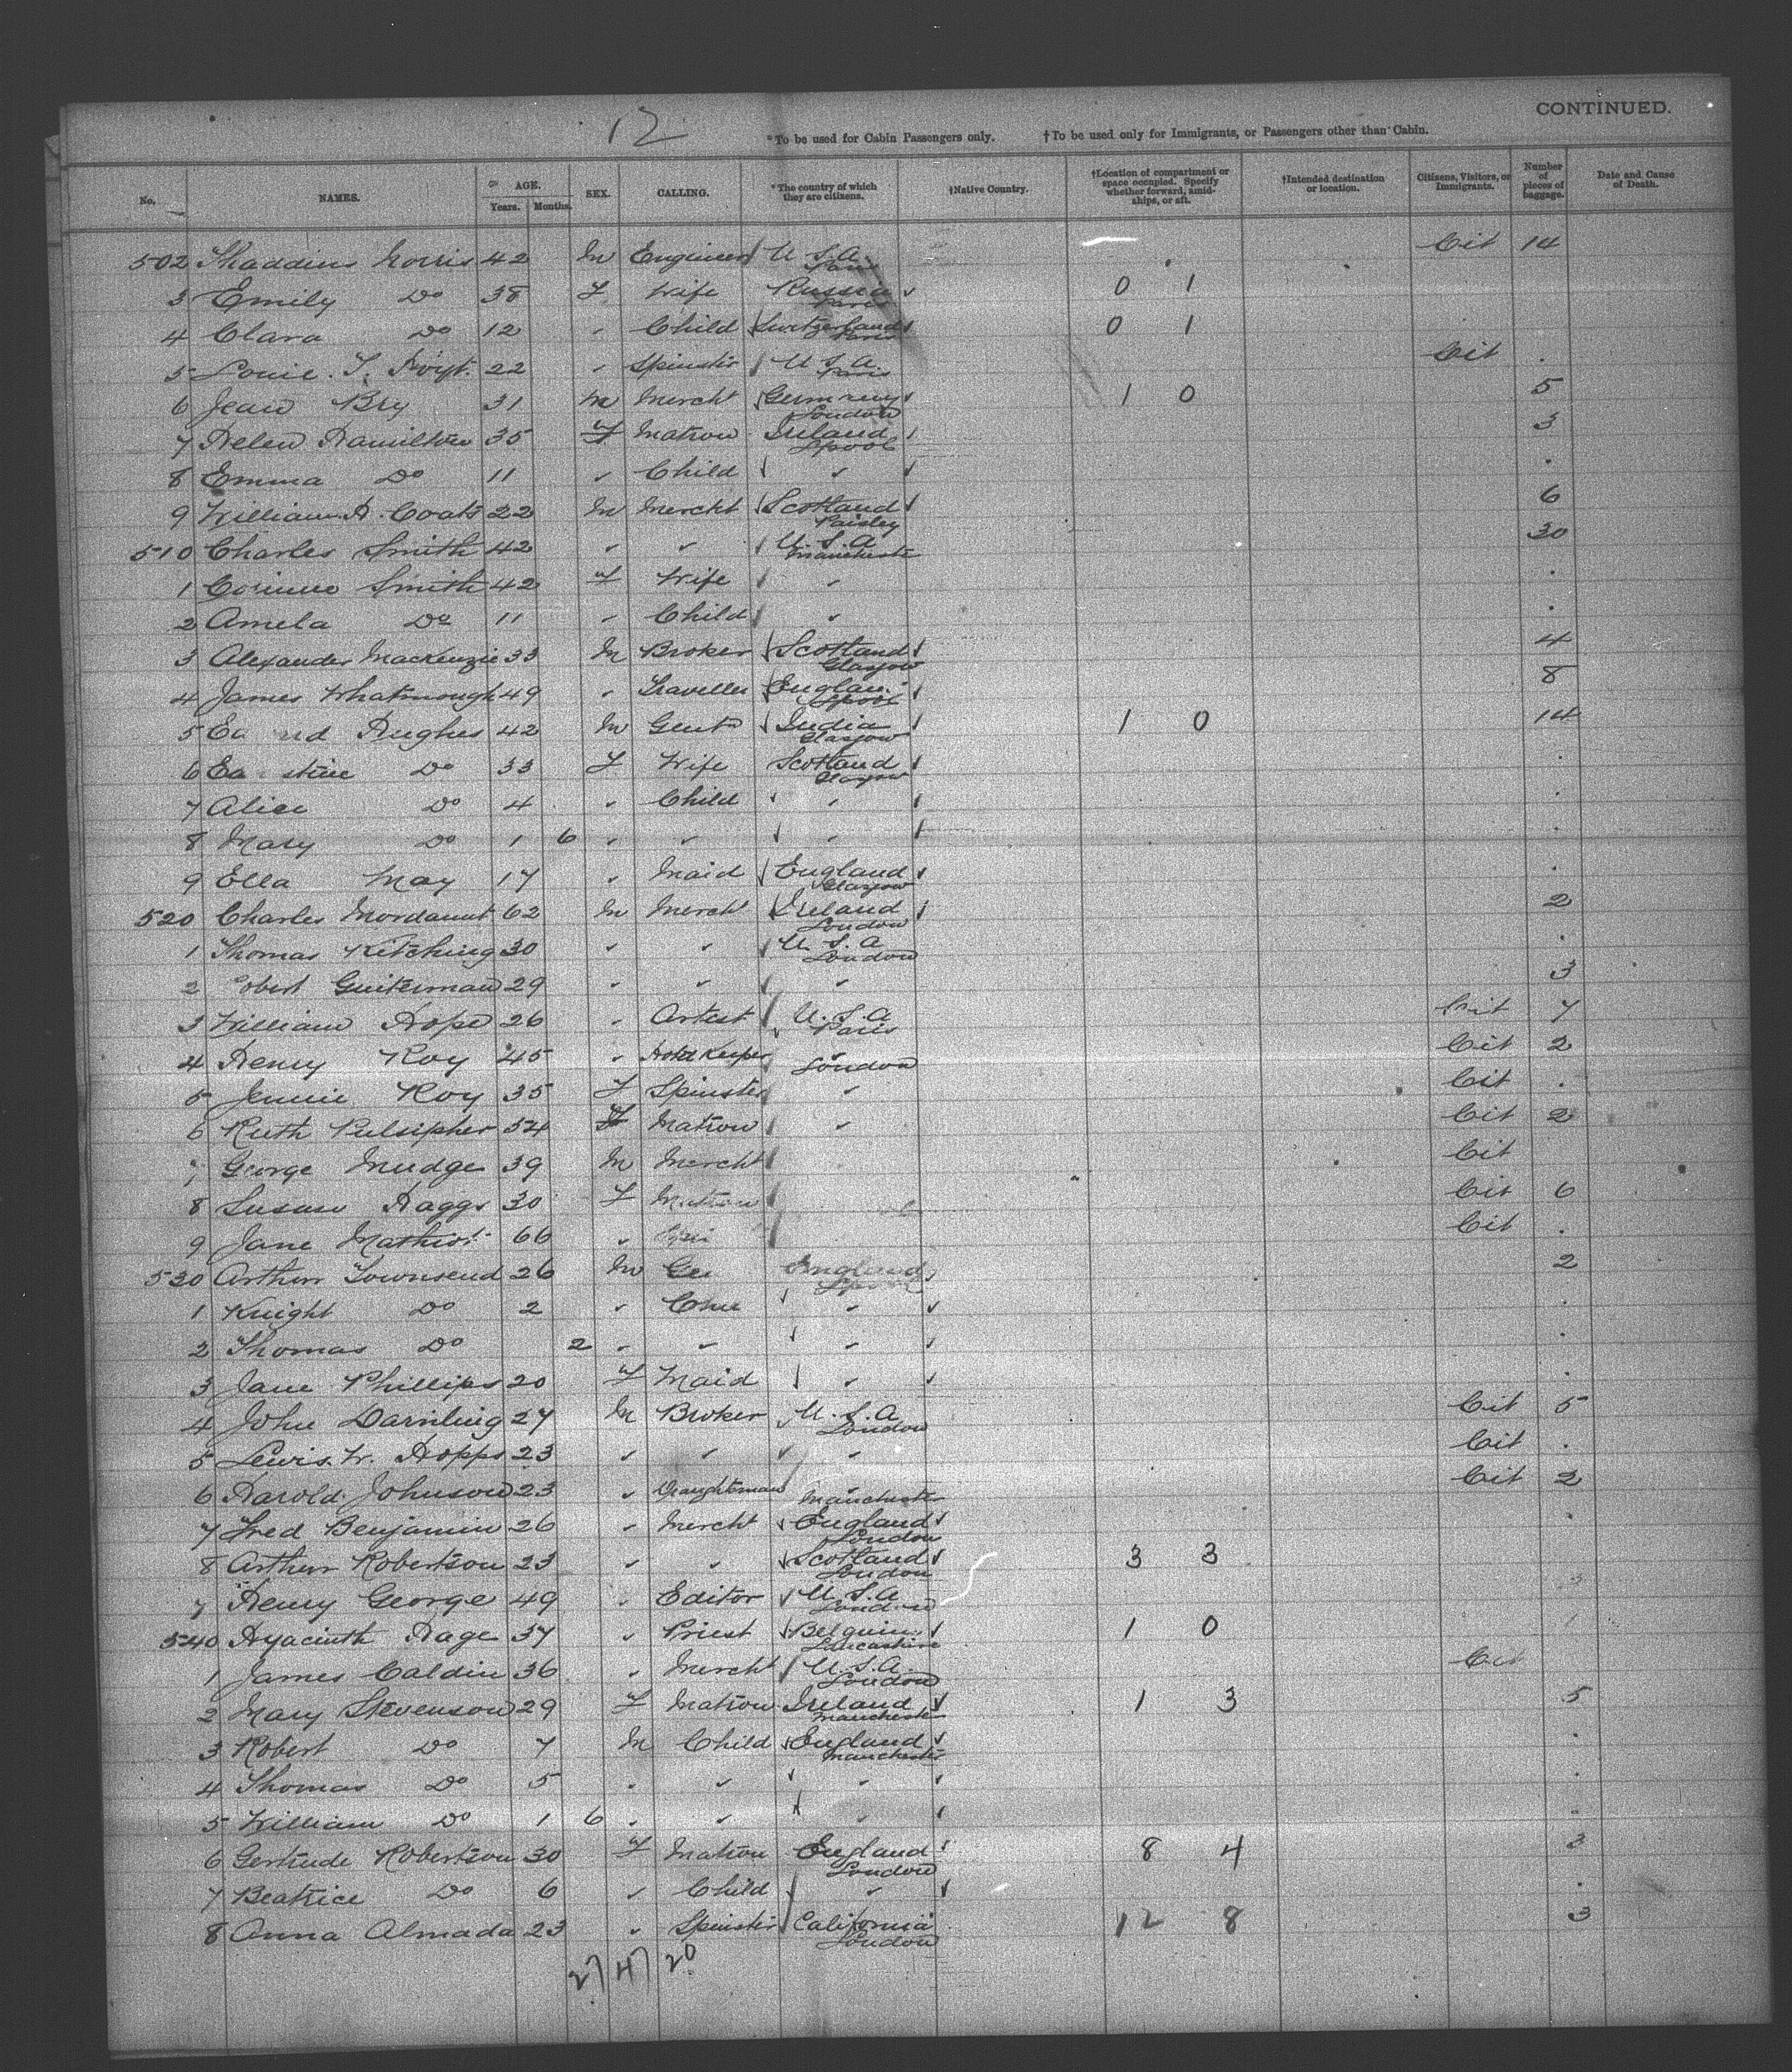 CONTINUED.
12
*To be used for Cabin Passengers only. †To be used only for Immigrants, or Passengers other than Cabin.
No. NAMES. AGE. Years. Months. SEX. CALLING. *The country of which they are citizens. †Native Country. †Location of compartment or space occupied. Specify whether forward, amidships, or aft. †Intended destination or location. Citizens, Visitors, or Immigrants. Number of pieces of baggage. Date and Cause of Death.
502 Thaddius Norris 42 M Engineer U.S.A. Paris Cit 14
3 Emily Do 38 F Wife Russia Paris 0 1
4 Clara Do 12 " Child Switzerland Paris 0 1
5 Louie. T. 22 " Spinster U.S.A. Paris Cit .
6 Jean Bry 31 M Mercht Germany London 1 0 5
7 Helen Hamilton 35 F Matron Ireland Lpool 3
8 Emma Do 11 " Child " .
9 William A. Coats 22 M Mercht Scotland Paisley 6
510 Charles Smith 42 " " U.S.A Manchester 30
1 Corinne Smith 42 F Wife " .
2 Amela Do 11 " Child " .
3 Alexander MacKenzie 33 M Broker Scotland Glasgow 4
4 James Whatmough 49 " Traveller England Lpool 8
5 Hughes 42 M Gent India Glasgow 1 0 14
6 Do 33 F Wife Scotland Glasgow .
7 Alice Do 4 " Child " .
8 Mary Do 1 6 " " " .
9 Ella May 17 " Maid England Glasgow .
520 Charles Mordaunt 62 M Mercht Ireland London 2
1 Thomas Kitching 30 " " U.S.A London .
2 obert Guiterman 29 " " " 3
3 William Hope 26 " Artest U.S.A Paris Cit 7
4 Henry Roy 45 " Hotel Keeper " London Cit 2
5 Jennie Roy 35 F Spinster " Cit .
6 Ruth Pulsipher 54 F Matron " Cit 2
7 George Mudge 39 M Mercht Cit
8 Susan Haggs 30 F Matron Cit 6
9 Jane 66 " Cit .
530 Arthur Townsend 26 M England Lpool 2
1 Knight Do 2 " " .
2 Thomas Do 2 " " " .
3 Jane Phillips 20 F Maid " .
4 John Darnling 27 M Broker U.S.A London Cit 5
5 Lewis. W. Hopps 23 " " " Cit .
6 Harold Johnson 23 " Draughtsman " Manchester Cit 2
7 Fred Benjamin 26 " Mercht England London .
8 Arthur Robertson 23 " " Scotland London 3 3
7 Henry George 49 " Editor U.S.A London
540 Hyacinth Hage 37 " Priest Belguim Lancashire 1 0
1 James Caldin 36 " Mercht U.S.A London Cit
2 Mary Stevenson 29 F Matron Ireland Manchester 1 3 5
3 Robert Do 7 M Child England Manchester .
4 Thomas Do 5 " " " .
5 William Do 1 6 " " " .
6 Gertrude Robertson 30 F Matron England London 8 4 3
7 Beatrice Do 6 " Child " .
8 Anna Almada 23 " Spinster California London 12 8 3
27 47 20